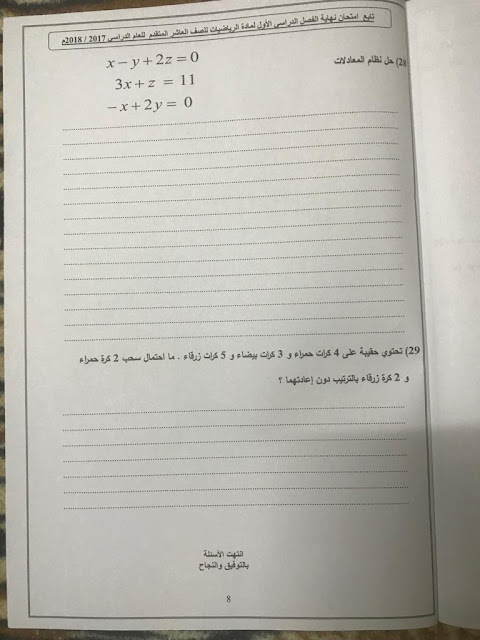 تابع امتحان نهاية الفصل الدراسي الأول لمادة الرياضيات للصف العاشر المتقدم للعام الدراسي 2017 / 2018م
28) حل نظام المعادلات
x − y + 2z = 0
3x + z = 11
− x + 2y = 0
29) تحتوي حقيبة على 4 كرات حمراء و 3 كرات بيضاء و 5 كرات زرقاء . ما احتمال سحب 2 كرة حمراء
و 2 كرة زرقاء بالترتيب دون إعادتهما ؟
انتهت الأسئلة
بالتوفيق والنجاح
8